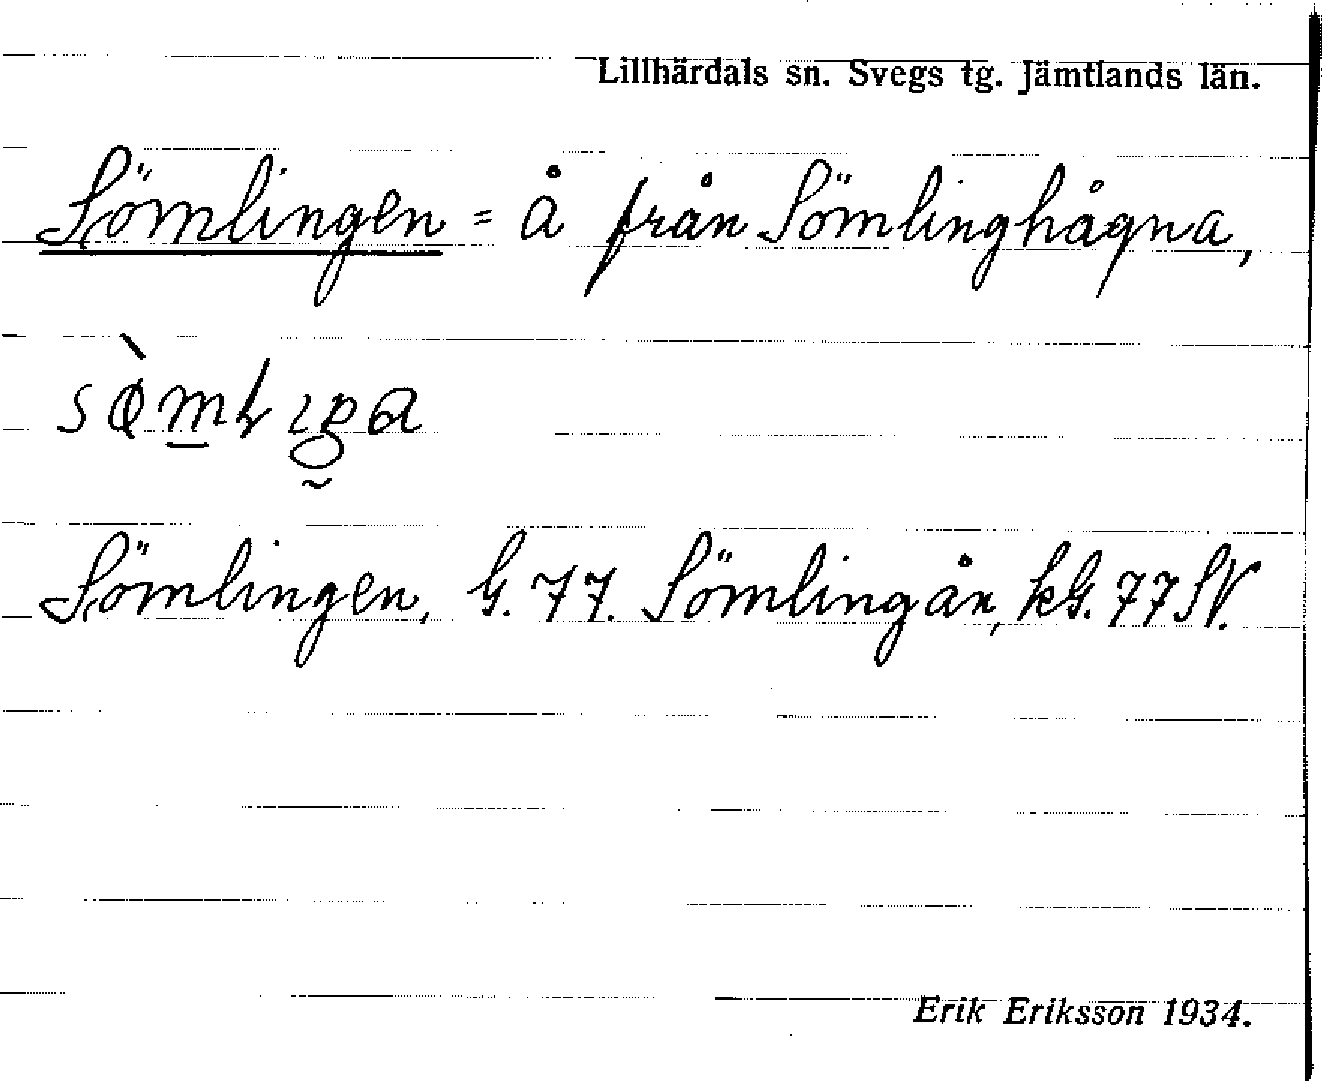 Lillhärdals sn. Svegs tg. Jämtlands län.
Sömlingen = å från Sömlinghågna,
Sömlingen, G. 77. Sömlingån, kG. 77 SV.
Erik Eriksson 1934.